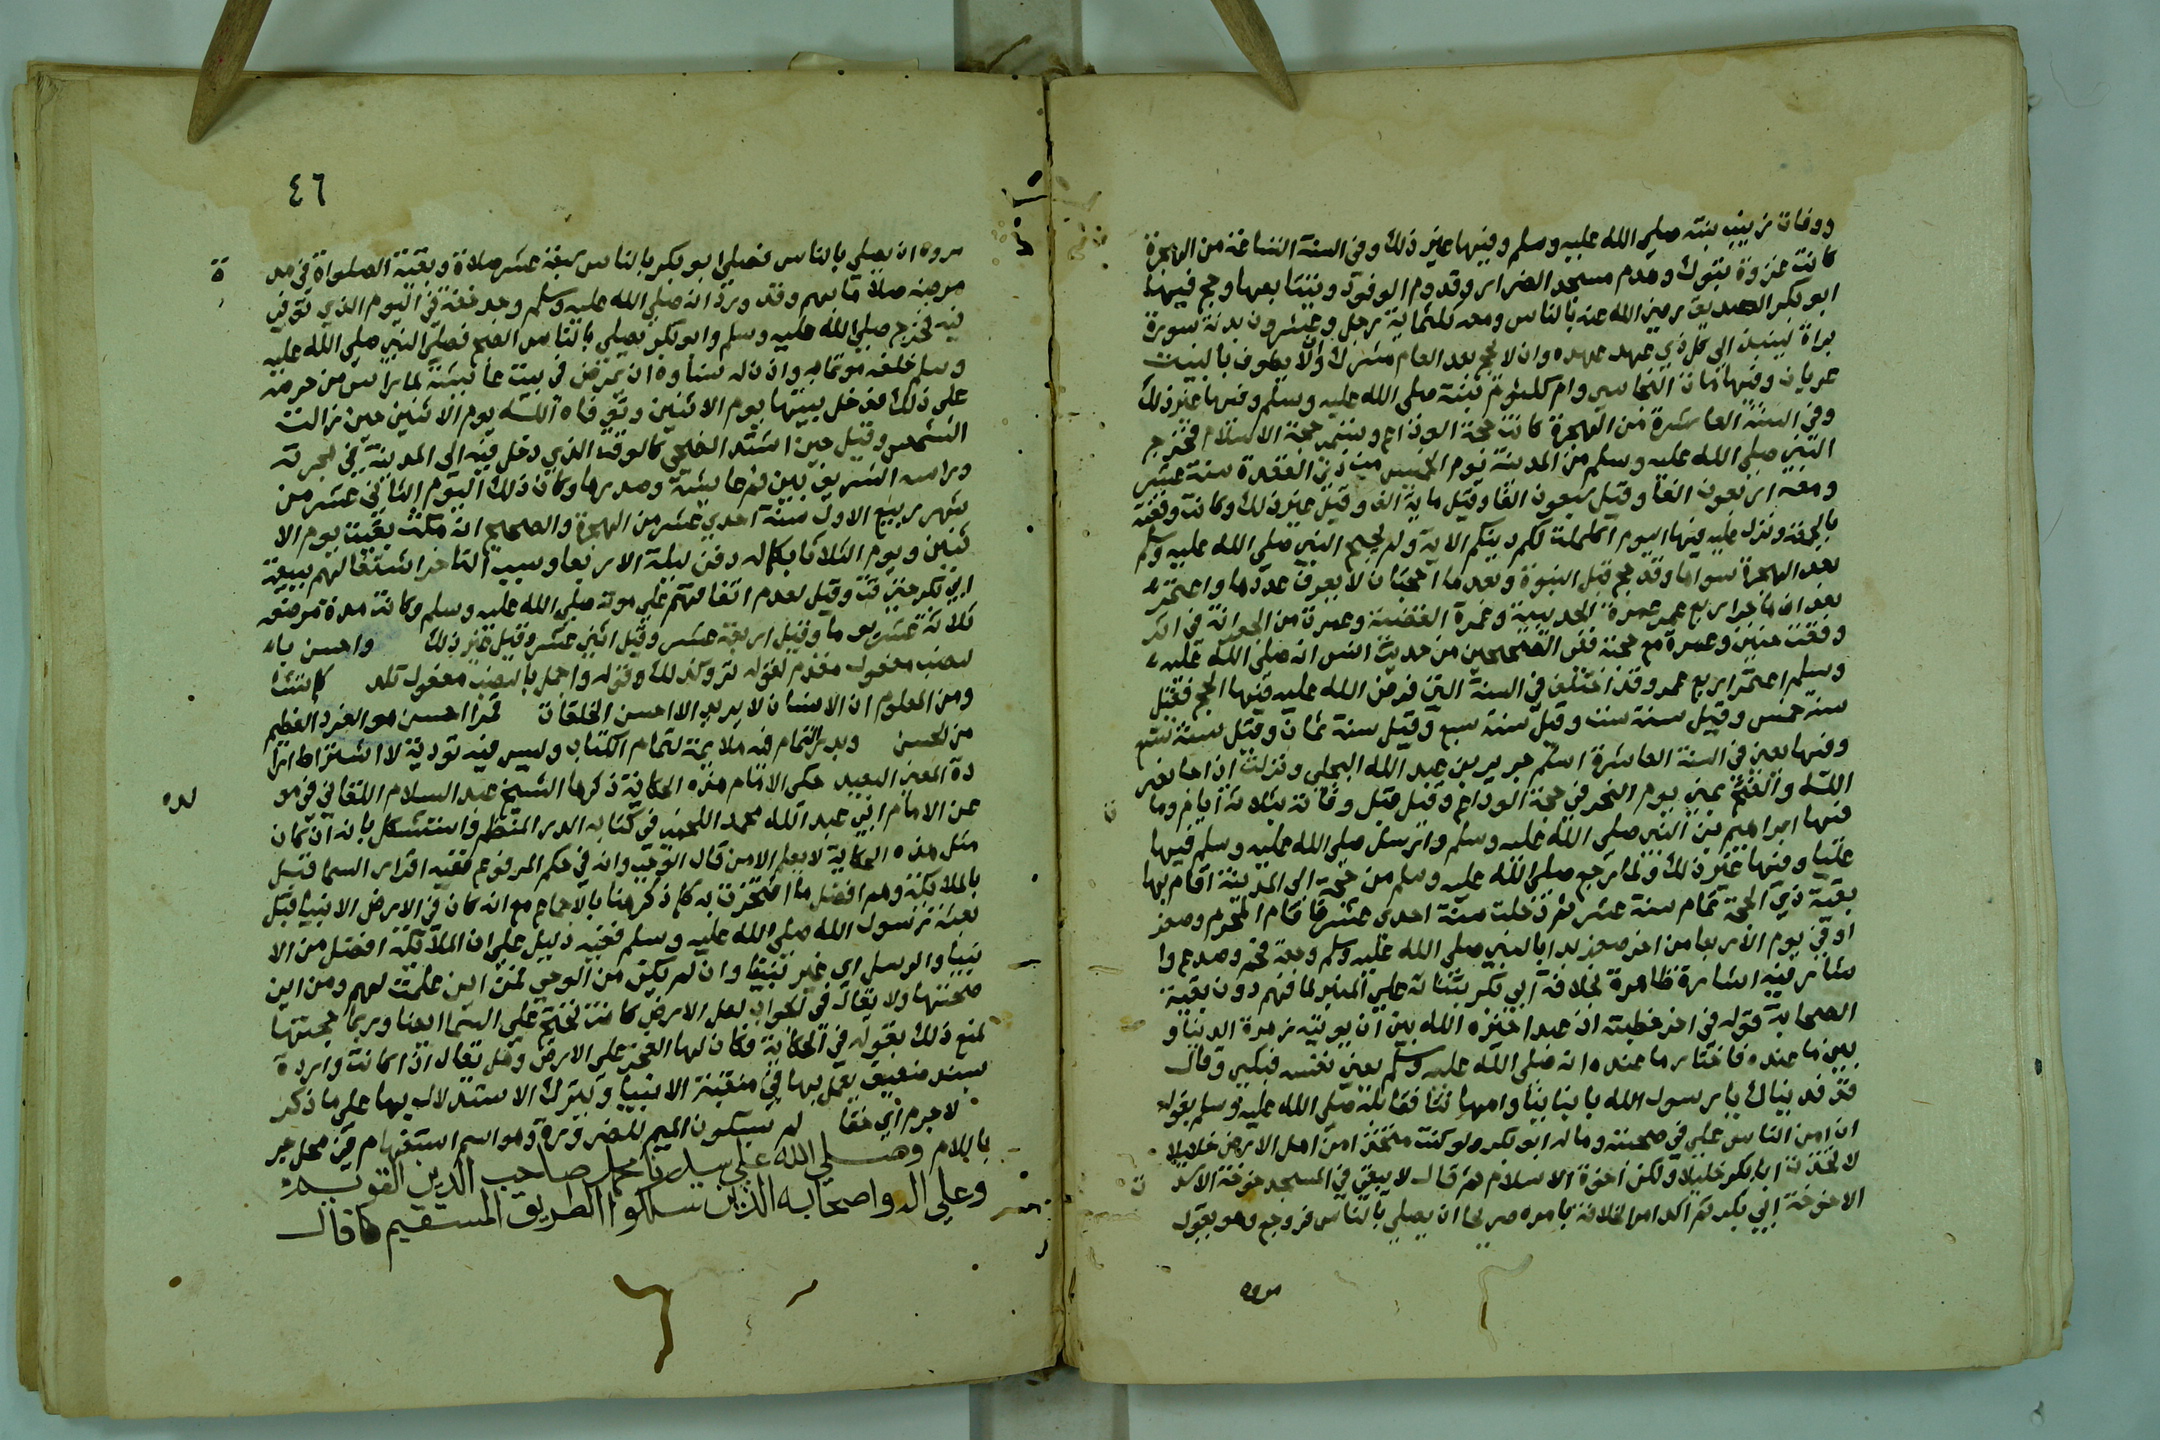 ووفات زينب بنته صلي الله عليه وسلم وفيها غير ذلك وفي السنة التاسعة من الهجرة
كانت غزوة بتوك وهدم مسجد الضرار وقدوم الوفود وتتابعها وحج فيها
ابو بكر الصديق رضي الله عنه بالناس ومعه ثلثماية رجل وعشرون بدنة سورة
براة لينبذ الي كل ذي عهد عهده وان لا يحج بعد العام مشرك ولا يطوف بالبيت
عريان وفيها مات النجاسي وام كلثوم بنته صلي الله عليه وسلم وفيها غير ذلك
وفي السنة العاشرة من الهجرة كانت حجة الوداع وتسمي حجة الاسلام فخرج
النبي صلي الله عليه وسلم من المدينة يوم الخميس من ذي القعدة سنة عشر
ومعه اربعون الفا وقيل سبعون الفا وقيل ماية الف وقيل غير ذلك وكانت وقفته
بالجمعة ونزل عليه فيها اليوم اكملت لكم دينكم الاية ولم يحج النبي صلي الله عليه وسلم
بعد الهجرة سواها وقد حج قبل النبوة وبعدها حجات لا يعرف عددها واعتمر
بعد ان هاجر اربع عمر عمرة الحديبية وعمرة القضية وعمرة من الجعرانة في اثر
وقعت حنين وعمرة مع حجته ففي الصحيحين من حديث انس انه صلي الله عليه
وسلم اعتمر اربع عمر وقد اختلف في السنة التي فرض الله عليه فيها الحج فقيل
سنة خمس وقيل سنة ست وقيل سنة سبع وقيل سنة ثمان وقيل سنة تسع
وفيها يعني في السنة العاشرة اسلم جرير بن عبد الله البجلي ونزلت اذا جا نصر
الله والفتح بمني يوم النحر في حجة الوداع وقيل قبل وفاته بثلاثة ايام وما
فيها ابراهيم بن النبي صلي الله عليه وسلم وارسل صلي الله عليه وسلم فيها
عليا وفيها غير ذلك ولما رجع صلي الله عليه وسلم من حجه الي المدينة اقام بها
بقية ذي الحجة تمام سنة عشر ثم دخلت سنة احدي عشر فاقام المحرم وصفر
او في يوم الاربعا من اخر صفر بدا بالنبي صلي الله عليه وسلم وجعه فحم وصدع وا
شار فيه اشارة ظاهرة لخلافة ابي بكر بثنائه علي المنبر لما فهم دون بقية
الصحابة قوله في اخر خطبته ان عبدا خيره الله بين ان يوتيه زهرة الدنيا و
بين ما عنده فاختار ما عنده انه صلي الله عليه وسلم يعني نفسه فبكي وقال
فديناك يا رسول الله بابائنا وامهاتنا فقابله صلي الله عليه وسلم بقوله
ان امن الناس علي في صحبته وماله ابو بكر ولو كنت متخذا من اهل الارض خليلا
لاتخذت ابا بكر خليلا ولكن اخوة الاسلام ثم قال لا يبقي في المسجد خوخة الا سد
الا خوخة ابي بكر ثم اكد امر الخلافة بامره صريحا ان يصلي بالناس فروجع وهو يقول
مروه
٤٦
مروه ان يصلي بالناس فصلي ابو بكر بالناس سبعة عشر صلاة وبقية الصلواة في مد
ة
مرضه صلاها بهم وقد ورد انه صلي الله عليه وسلم وجد خفة في اليوم الذي توفي
فيه فخرج صلي الله عليه وسلم وابو بكر يصلي بالناس الصبح فصلي النبي صلي الله عليه
وسلم خلفه موتما به واذن له نساوه ان يمرض في بيت عائشة لما راين من حرصه
علي ذلك فدخل بيتها يوم الاثنين وتوفاه الله يوم الاثنين حين زالت
الشمس وقيل حين اشتد الضحي كالوقت الذي دخل فيه الي المدينة في هجرته
وراسه الشريف بين نحر عايشة وصدرها وكان ذلك اليوم الثاني عشر من
شهر ربيع الاول سنة احدي عشر من الهجرة والصحيح انه مكث بقيت يوم الا
ثنين ويوم الثلاثا بكماله ودفن ليلة الاربعا وسبب التاخر اشتغالهم ببيعة
ابي بكر حتي تمت وقيل لعدم اتفاقهم علي موته صلي الله عليه وسلم وكانت مدة مرضه
ثلاثة عشر يوما وقيل اربعة عشر وقيل اثني عشر وقيل غير ذلك واحسن با
لنصب مفعول مقدم لقوله تر وكذلك وقوله واجمل بالنصب مفعول تلد كما تشا
ومن المعلوم ان الانسان لا يريد الا احسن الخلقات ثم ا احسن هو الفرد العظيم
من الحسن وبدر التمام فيه ملايمة لتمام الكتاب وليس فيه تودية لا اشتراط ارا
دة المعني البعيد حكي الامام هذه الحكاية ذكرها الشيخ عبد السلام اللقاني في مو
لده
عن الامام ابي عبد الله محمد اللخمي في كتابه الدر المنظم واستشكل بانه ان كان
مثل هذه الحكاية لا يعلم الا من قال الوحي وانه في حكم المرفوع ففيه اقرار السما فتسل
بالملائكة وهم افضل ما افتخرت به كما ذكر هنا بالاجماع مع انه كان في الارض الانبيا قبل
بعثة رسول الله صلي الله عليه وسلم ففيه دليل علي ان الملائكة افضل من الا
نبيا والرسل اي غير نبينا وان لم يكن من الوحي فمن اين علمت لهم ومن اين
صحتها ولا يقال في الجواب لعل الارض كانت تحتج علي السما ايضا وربما حجتها
لمنع ذلك بقوله في الحكاية فكان لها الفخر علي الارض وهل تقال اذا كانت واردة
بسند ضعيف يعمل بها في منقبة الانبيا ويترك الاستدلال بها علي ما ذكر
لا جرم اي حقا لم بسكون الميم للضرورة وهو اسم استفهام في محل جر
باللام وصلي الله علي سيدنا محمد صاحب الدين القويم
وعلي اله واصحابه الذين سلكوا الطريق المستقيم كما قال